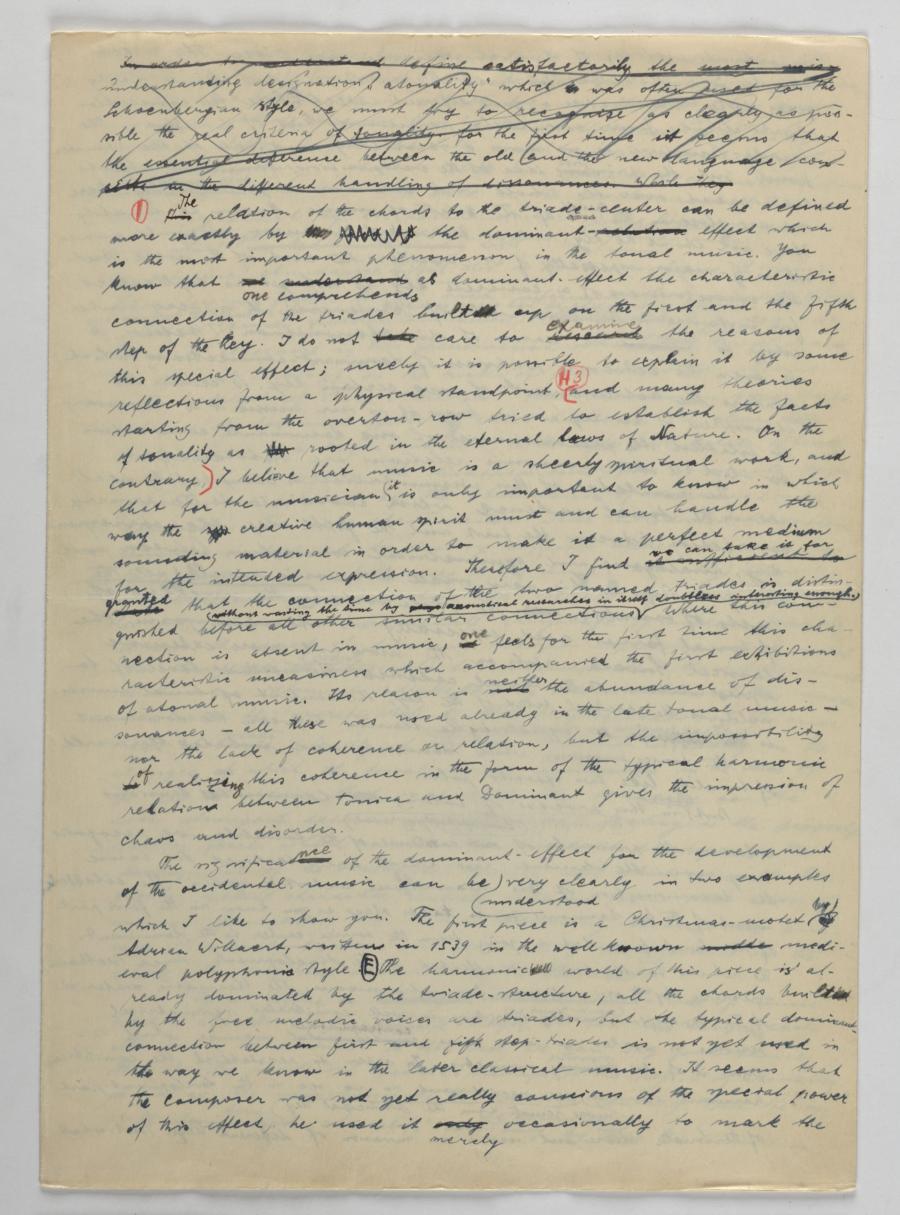 In order to understand define satisfactorily the most mis-
understanding designation "atonality" which is was often used for the
Schoenbergian style, we must try to recognise as clearly as pos-
sible the real criteria of tonality. for the first time it seems that
the essential difference between the old and the new language con-
sists in the different handling of dissonances. While they
1 This The relation of the chords to the triade-center can be defined
more exactly by the dominant-relation effect which
is the most important phenomenon in the tonal music. You
know that we understand one comprehends as dominant-effect the characteristic
connection of the triades built up on the first and the fifth
step of the key. I do not take care to research examine the reasons of
this special effect; surely it is possible to explain it by some
reflections from a physical standpoint, H3 and many theories
starting from the overton-row tried to establish the facts
of tonality as rooted in the eternal laws of Nature. On the
contrary) I believe that music is a sheerly spiritual work, and
that for the musician it is only important to know in which
way the creative human spirit must and can handle the
sounding material in order to make it a perfect medium
for the intended expression. Therefore I find it sufficient to we can take it for
granted that the connection of the two named triades is distin-
(without wasting the time by acoustical researches in itself doubtless interesting enough)
guished before all other similar connections. Where this con-
nection is absent in music, one feels for the first time this cha-
racteristic uneasiness which accompanied the first exhibitions
of atonal music. Its reason is neither the abundance of dis-
sonances – all these was used already in the late tonal music –
nor the lack of coherence or relation, but the impossibility
to of realizing this coherence in the form of the typical harmonic
relation between Tonica and Dominant gives the impression of
chaos and disorder.
The significance of the dominant-effect for the development
of the occidental music can be) very clearly in two examples
(understood
which I like to show you. The first piece is a Christmas-motet (by)
Adrian Willaert, written in 1539 in the well known medi-
eval polyphonic style. E The harmonic world of this piece is al-
ready dominated by the triade-structure, all the chords built
by the free melodic voices are triades, but the typical dominant-
connection between first and fifth step-triades is not yet used in
the way we know in the later classical music. It seems that
the composer was not yet really conscious of the special power
of this effect, he used it only occasionally to mark the
merely